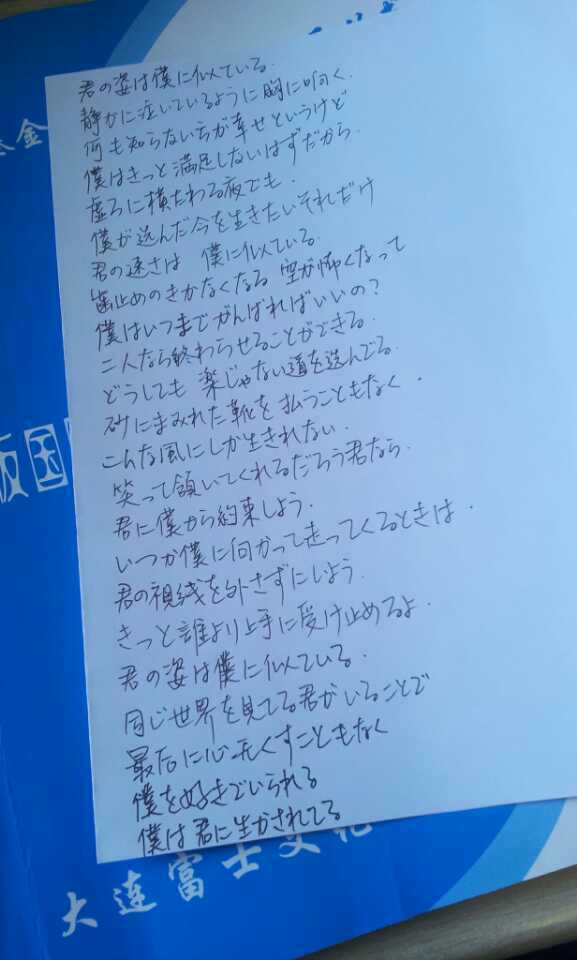 君の姿は僕に似ている.
静かに泣いているように胸に响く.
何も知らないちが幸せというけど
僕はきっと満足しないはずだから.
虚ろに横たわる夜でも.
僕が选んだ今を生きたいそれだけ
君の速さは 僕に似ている.
歯止めのきかなくなる 空が怖くなって
僕はいつまでがんばればいいの?
二人なら終わらせることができる.
どうしても 楽じゃない道を选んでる.
砂にまみれた靴を 払うこともなく.
こんな風にしか生きれない.
笑って頷いてくれるだろう君なら.
君に僕から約束しよう.
いつか僕に向かって走ってくるときは.
君の視线を外さずにしよう.
きっと誰より上手に受け止めるよ.
君の姿は僕に似ている.
同じ世界を見てる君がいることで
最后に心无くすこともなく
僕を好きでいられる
僕は君に生かされてる
金
版国
大连富士文化